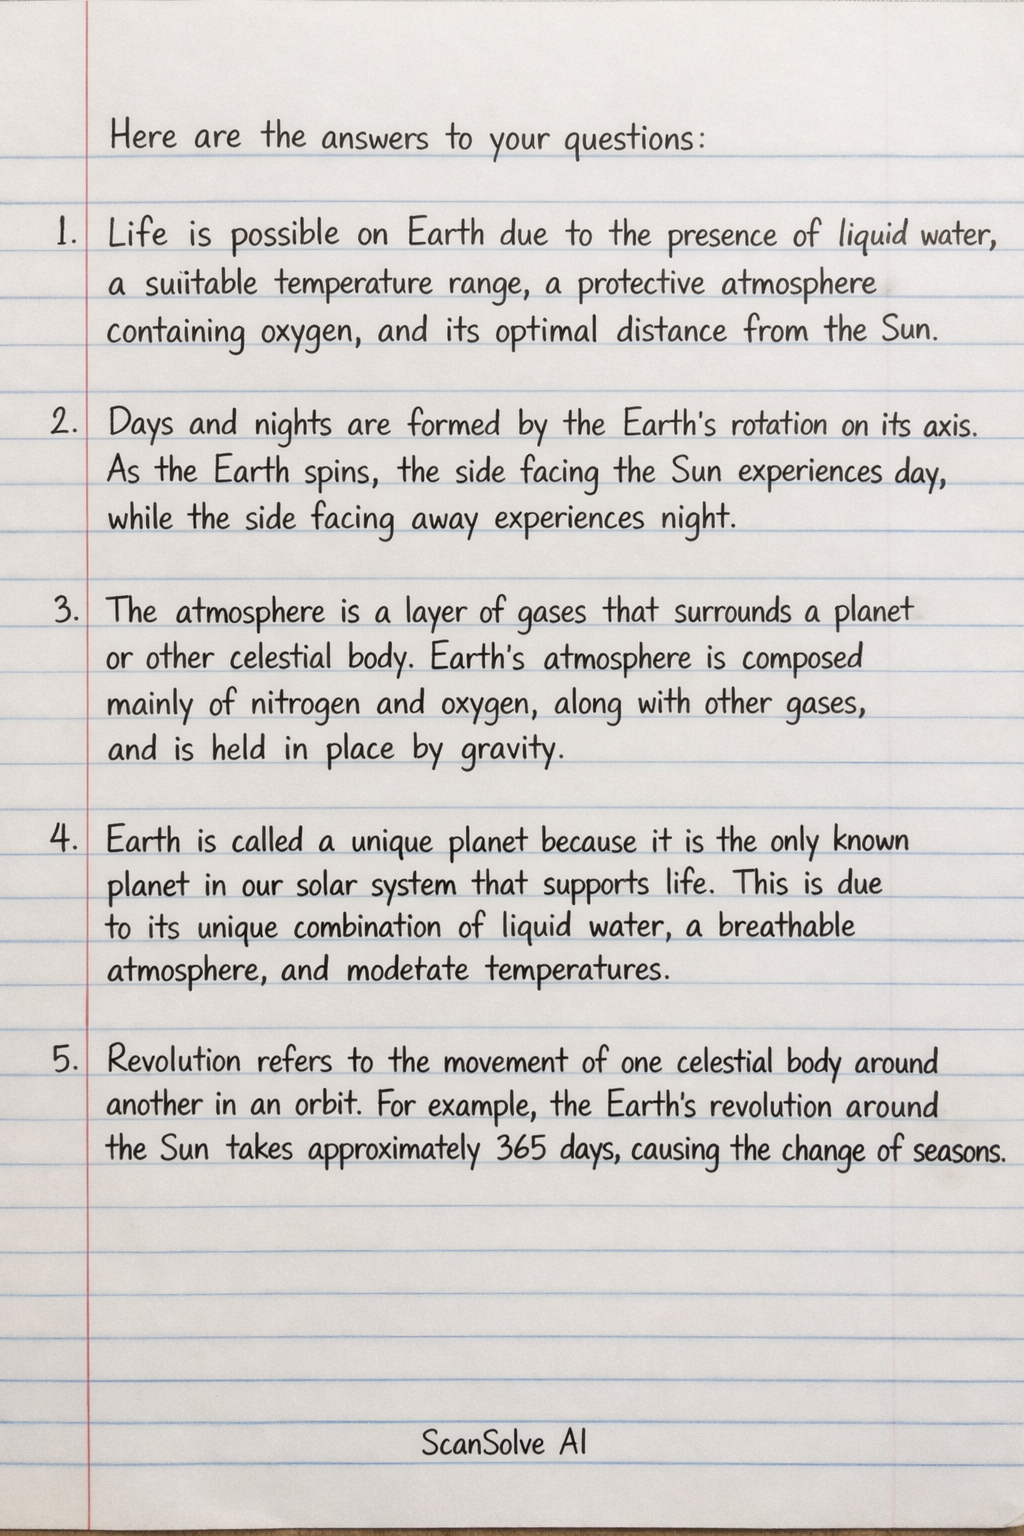 Here are the answers to your questions:
1. Life is possible on Earth due to the presence of liquid water,
a suiitable temperature range, a protective atmosphere
containing oxygen, and its optimal distance from the Sun.
2. Days and nights are formed by the Earth's rotation on its axis.
As the Earth spins, the side facing the Sun experiences day,
while the side facing away experiences night.
3. The atmosphere is a layer of gases that surrounds a planet
or other celestial body. Earth's atmosphere is composed
mainly of nitrogen and oxygen, along with other gases,
and is held in place by gravity.
4. Earth is called a unique planet because it is the only known
planet in our solar system that supports life. This is due
to its unique combination of liquid water, a breathable
atmosphere, and modetate temperatures.
5. Revolution refers to the movement of one celestial body around
another in an orbit. For example, the Earth's revolution around
the Sun takes approximately 365 days, causing the change of seasons.
ScanSolve AI